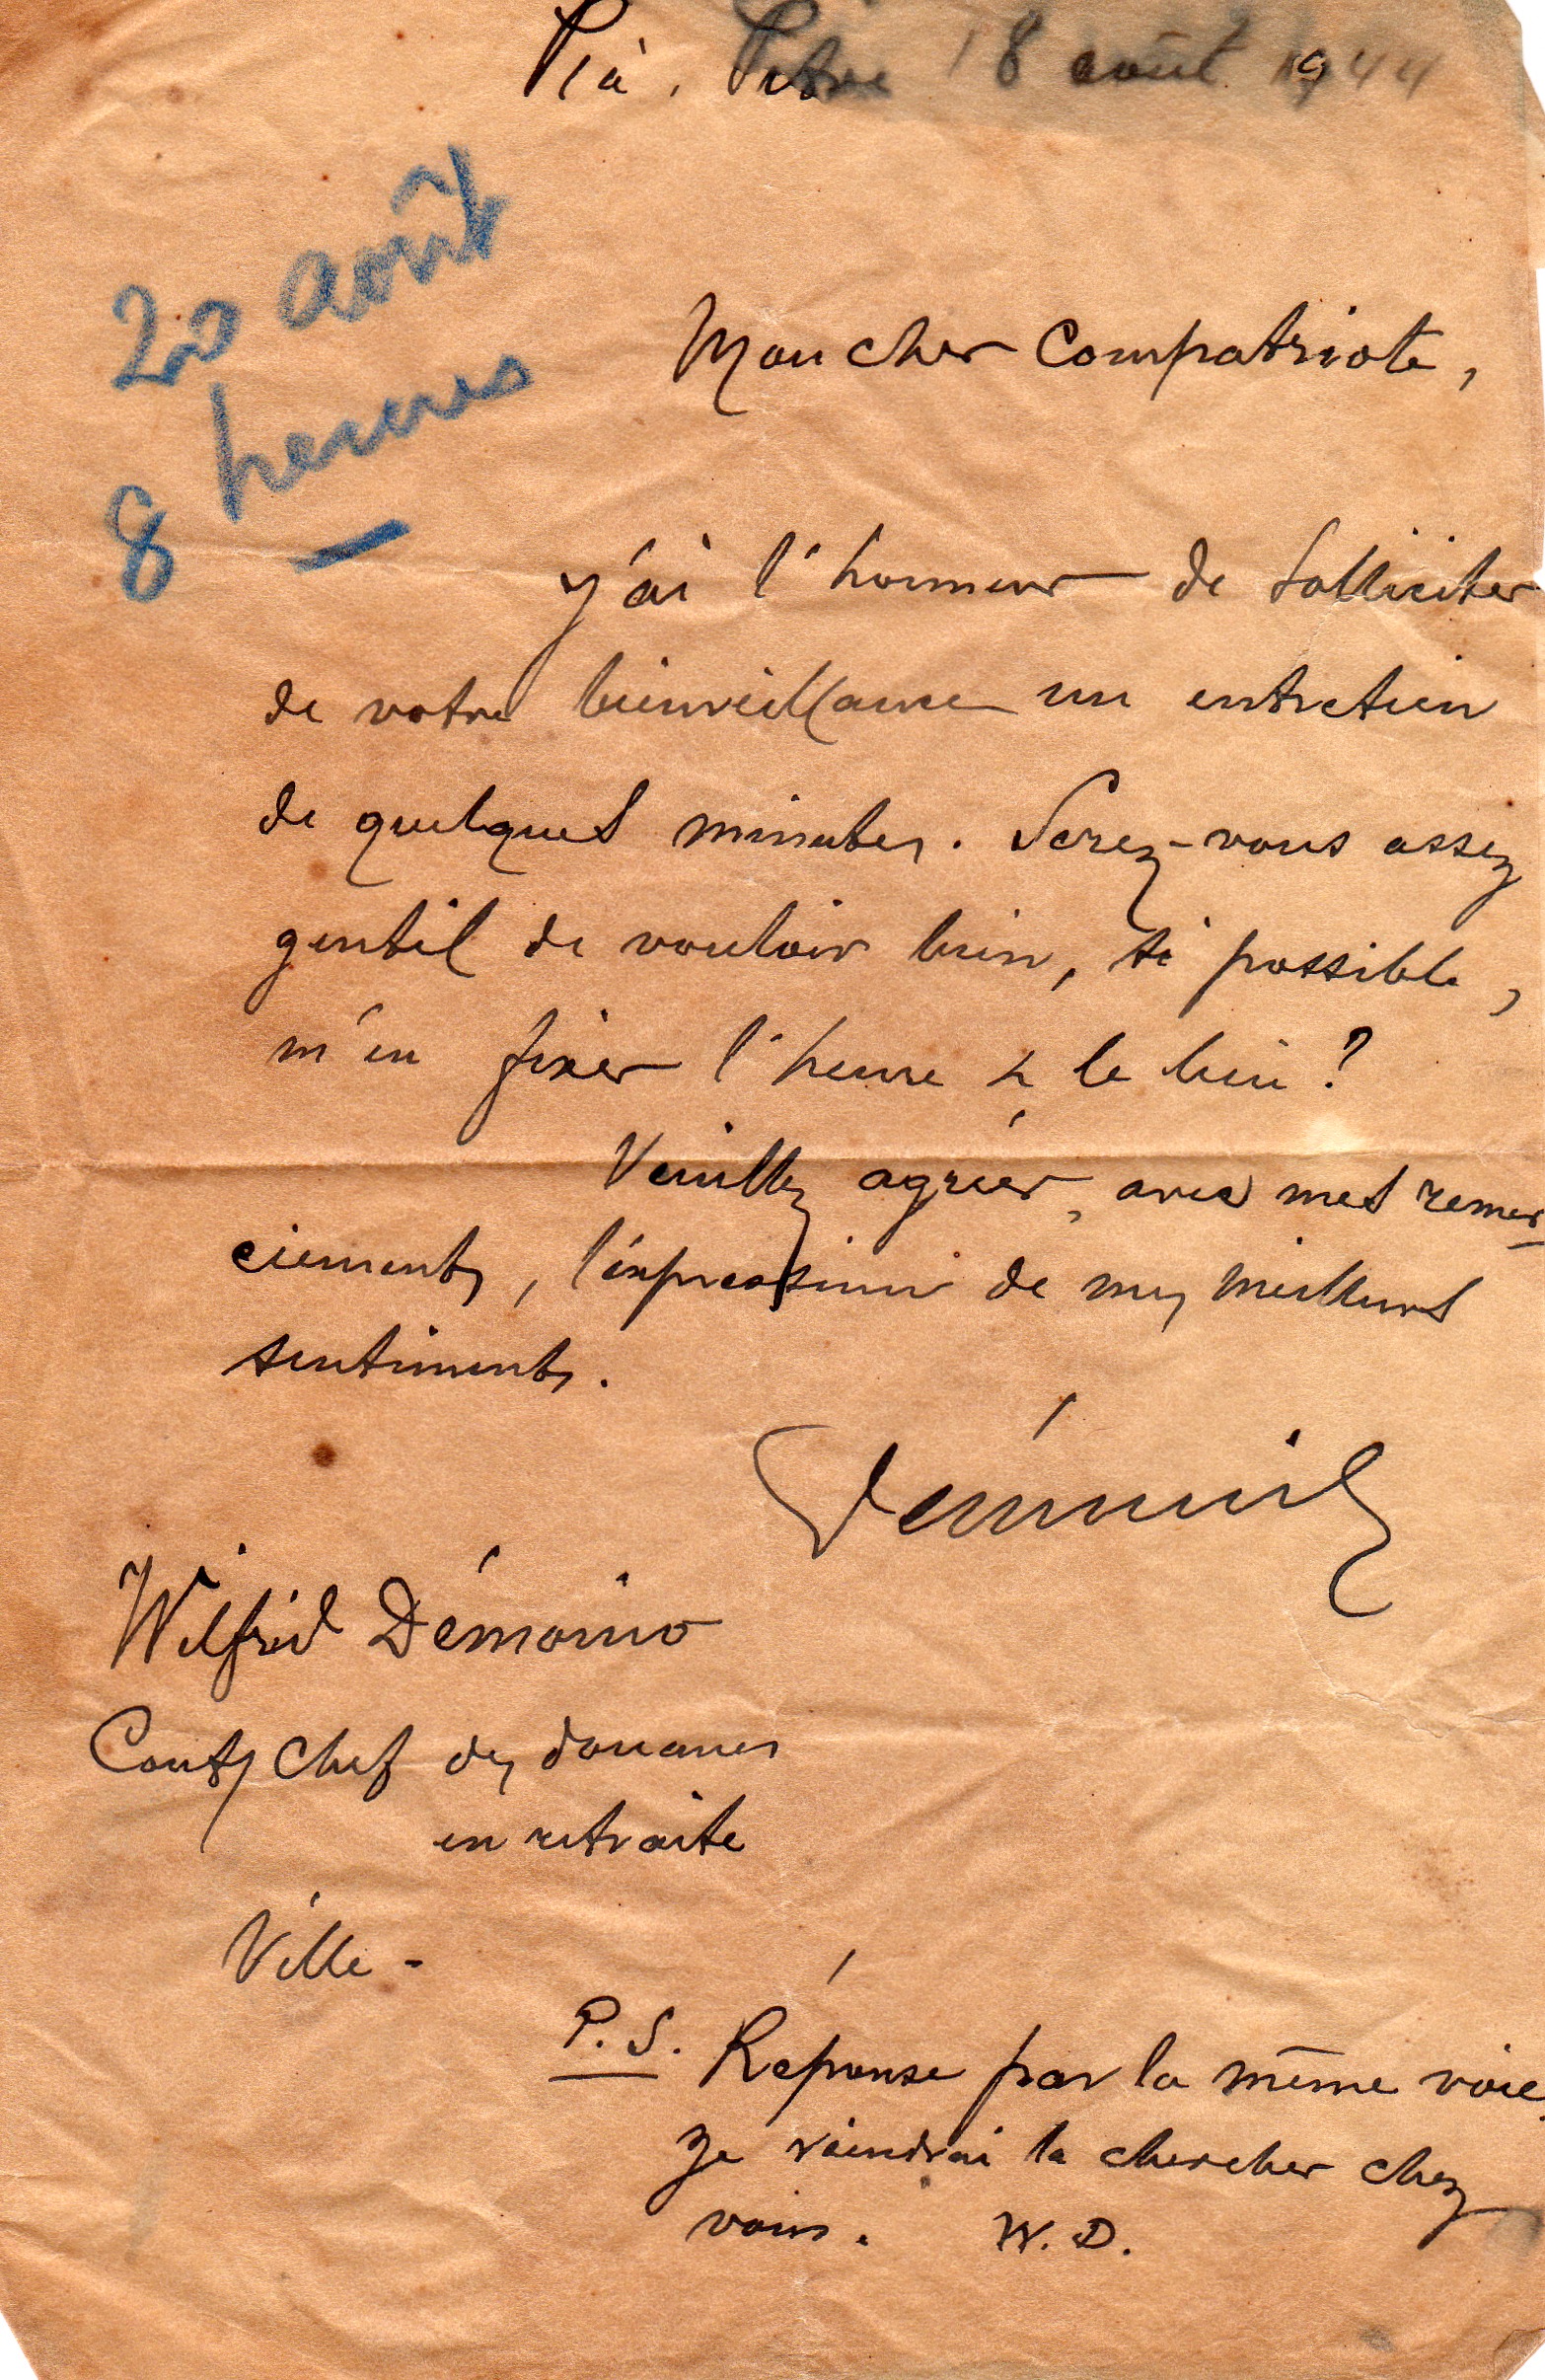 Pte à. Pitre 18 août 1944
20 août
8 heures
Mon cher Compatriote,
J'ai l'honneur de solliciter
de votre bienveillance un entretien
de quelques minutes. Serez-vous assez
gentil de vouloir bien, si possible,
m'en fixer l'heure & le lieu ?
Veuillez agréer, avec mes remer
ciements, l'expression de mes meilleurs
sentiments.
Wilfrid Démonio
Chef des douanes
en retraite
Ville -
P.S. Réponse par la même voie.
Je viendrai la chercher chez
vous. W.D.